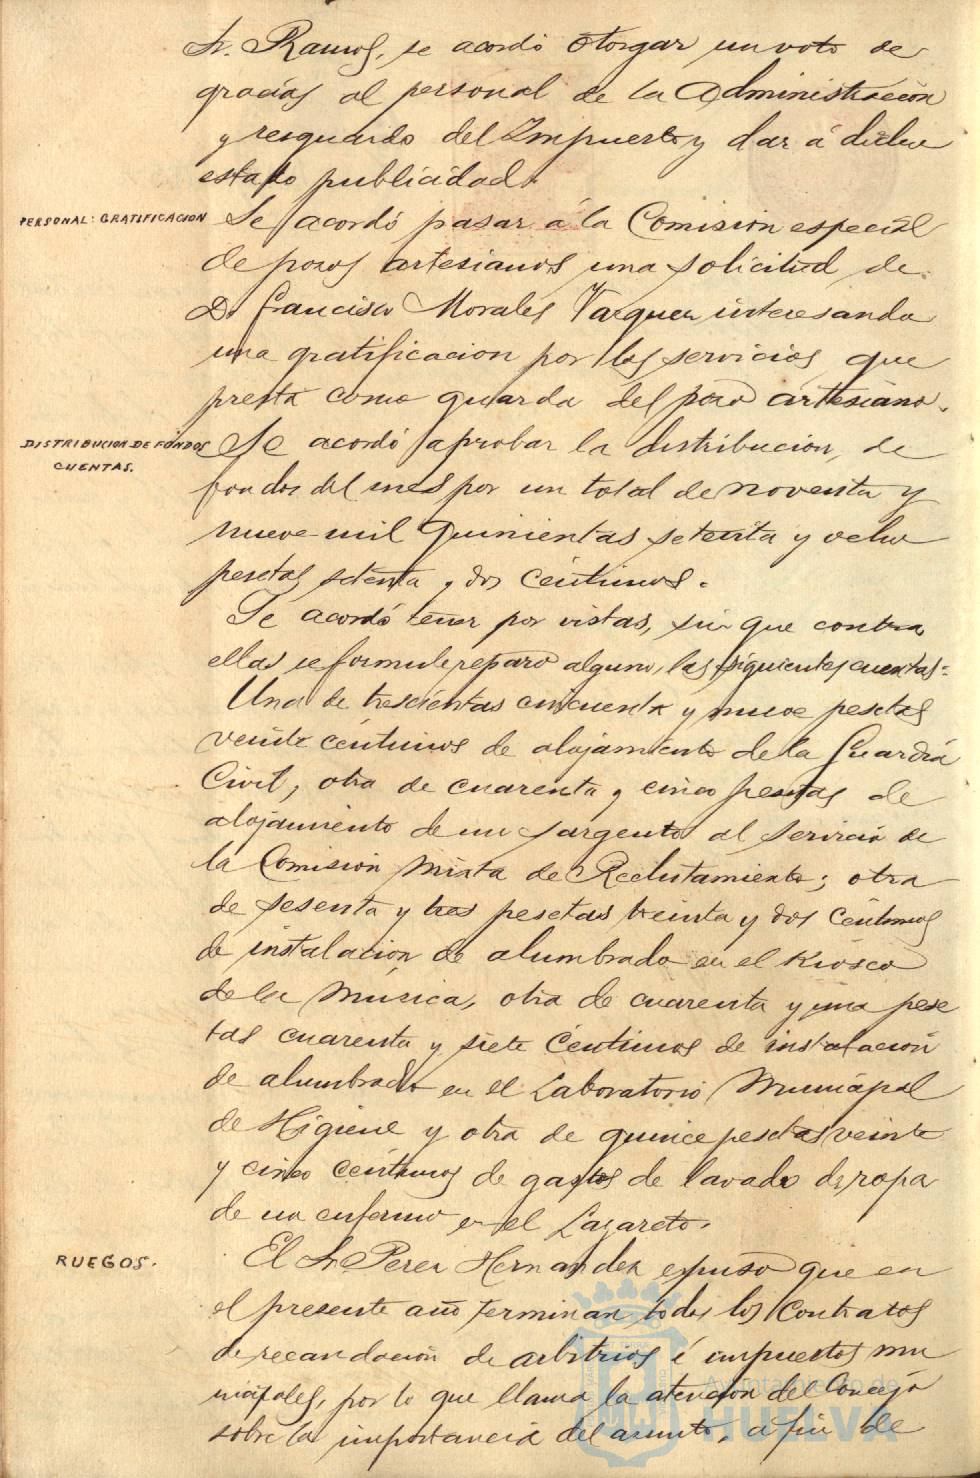 Sr. Ramos, se acordó otorgar un voto de
gracias al personal de la Administración
y resguardo del Impuesto y dar á dicho
estado publicidad.
PERSONAL: GRATIFICACION
Se acordó pasar á la Comisión especial
de pozos artesianos una solicitud de
D. Francisco Morales Vazquez interesando
una gratificacion por los servicios que
presta como guarda del pozo artesiano.
DISTRIBUCION DE FONDOS
CUENTAS.
Se acordó aprobar la distribución de
fondos del mes por un total de noventa y
nueve mil quinientas setenta y ocho
pesetas setenta y dos céntimos.
Se acordó tener por vistas, sin que contra
ellas se formule reparo alguno, las siguientes cuentas:
Una de trescientas cincuenta y nueve pesetas
veinte céntimos de alojamiento de la Guardia
Civil; otra de cuarenta y cinco pesetas de
alojamiento de un sargento al servicio de
la Comisión Mixta de Reclutamiento; otra
de sesenta y tres pesetas treinta y dos céntimos
de instalación de alumbrado en el Kiosco
de la Música, otra de cuarenta y una pese
tas cuarenta y siete céntimos de instalación
de alumbrado en el Laboratorio Municipal
de Higiene y otra de quince pesetas veinte
y cinco céntimos de gastos de lavado de ropa
de un enfermo en el Lazareto.
RUEGOS.
El Sr. Perez Hernandez expuso que en
el presente año terminan todos los contratos
de recaudación de arbitrios é impuestos mu
nicipales, por lo que llama la atención del Concejo
sobre la importancia del asunto, a fin de
Ayuntamiento de
HUELVA